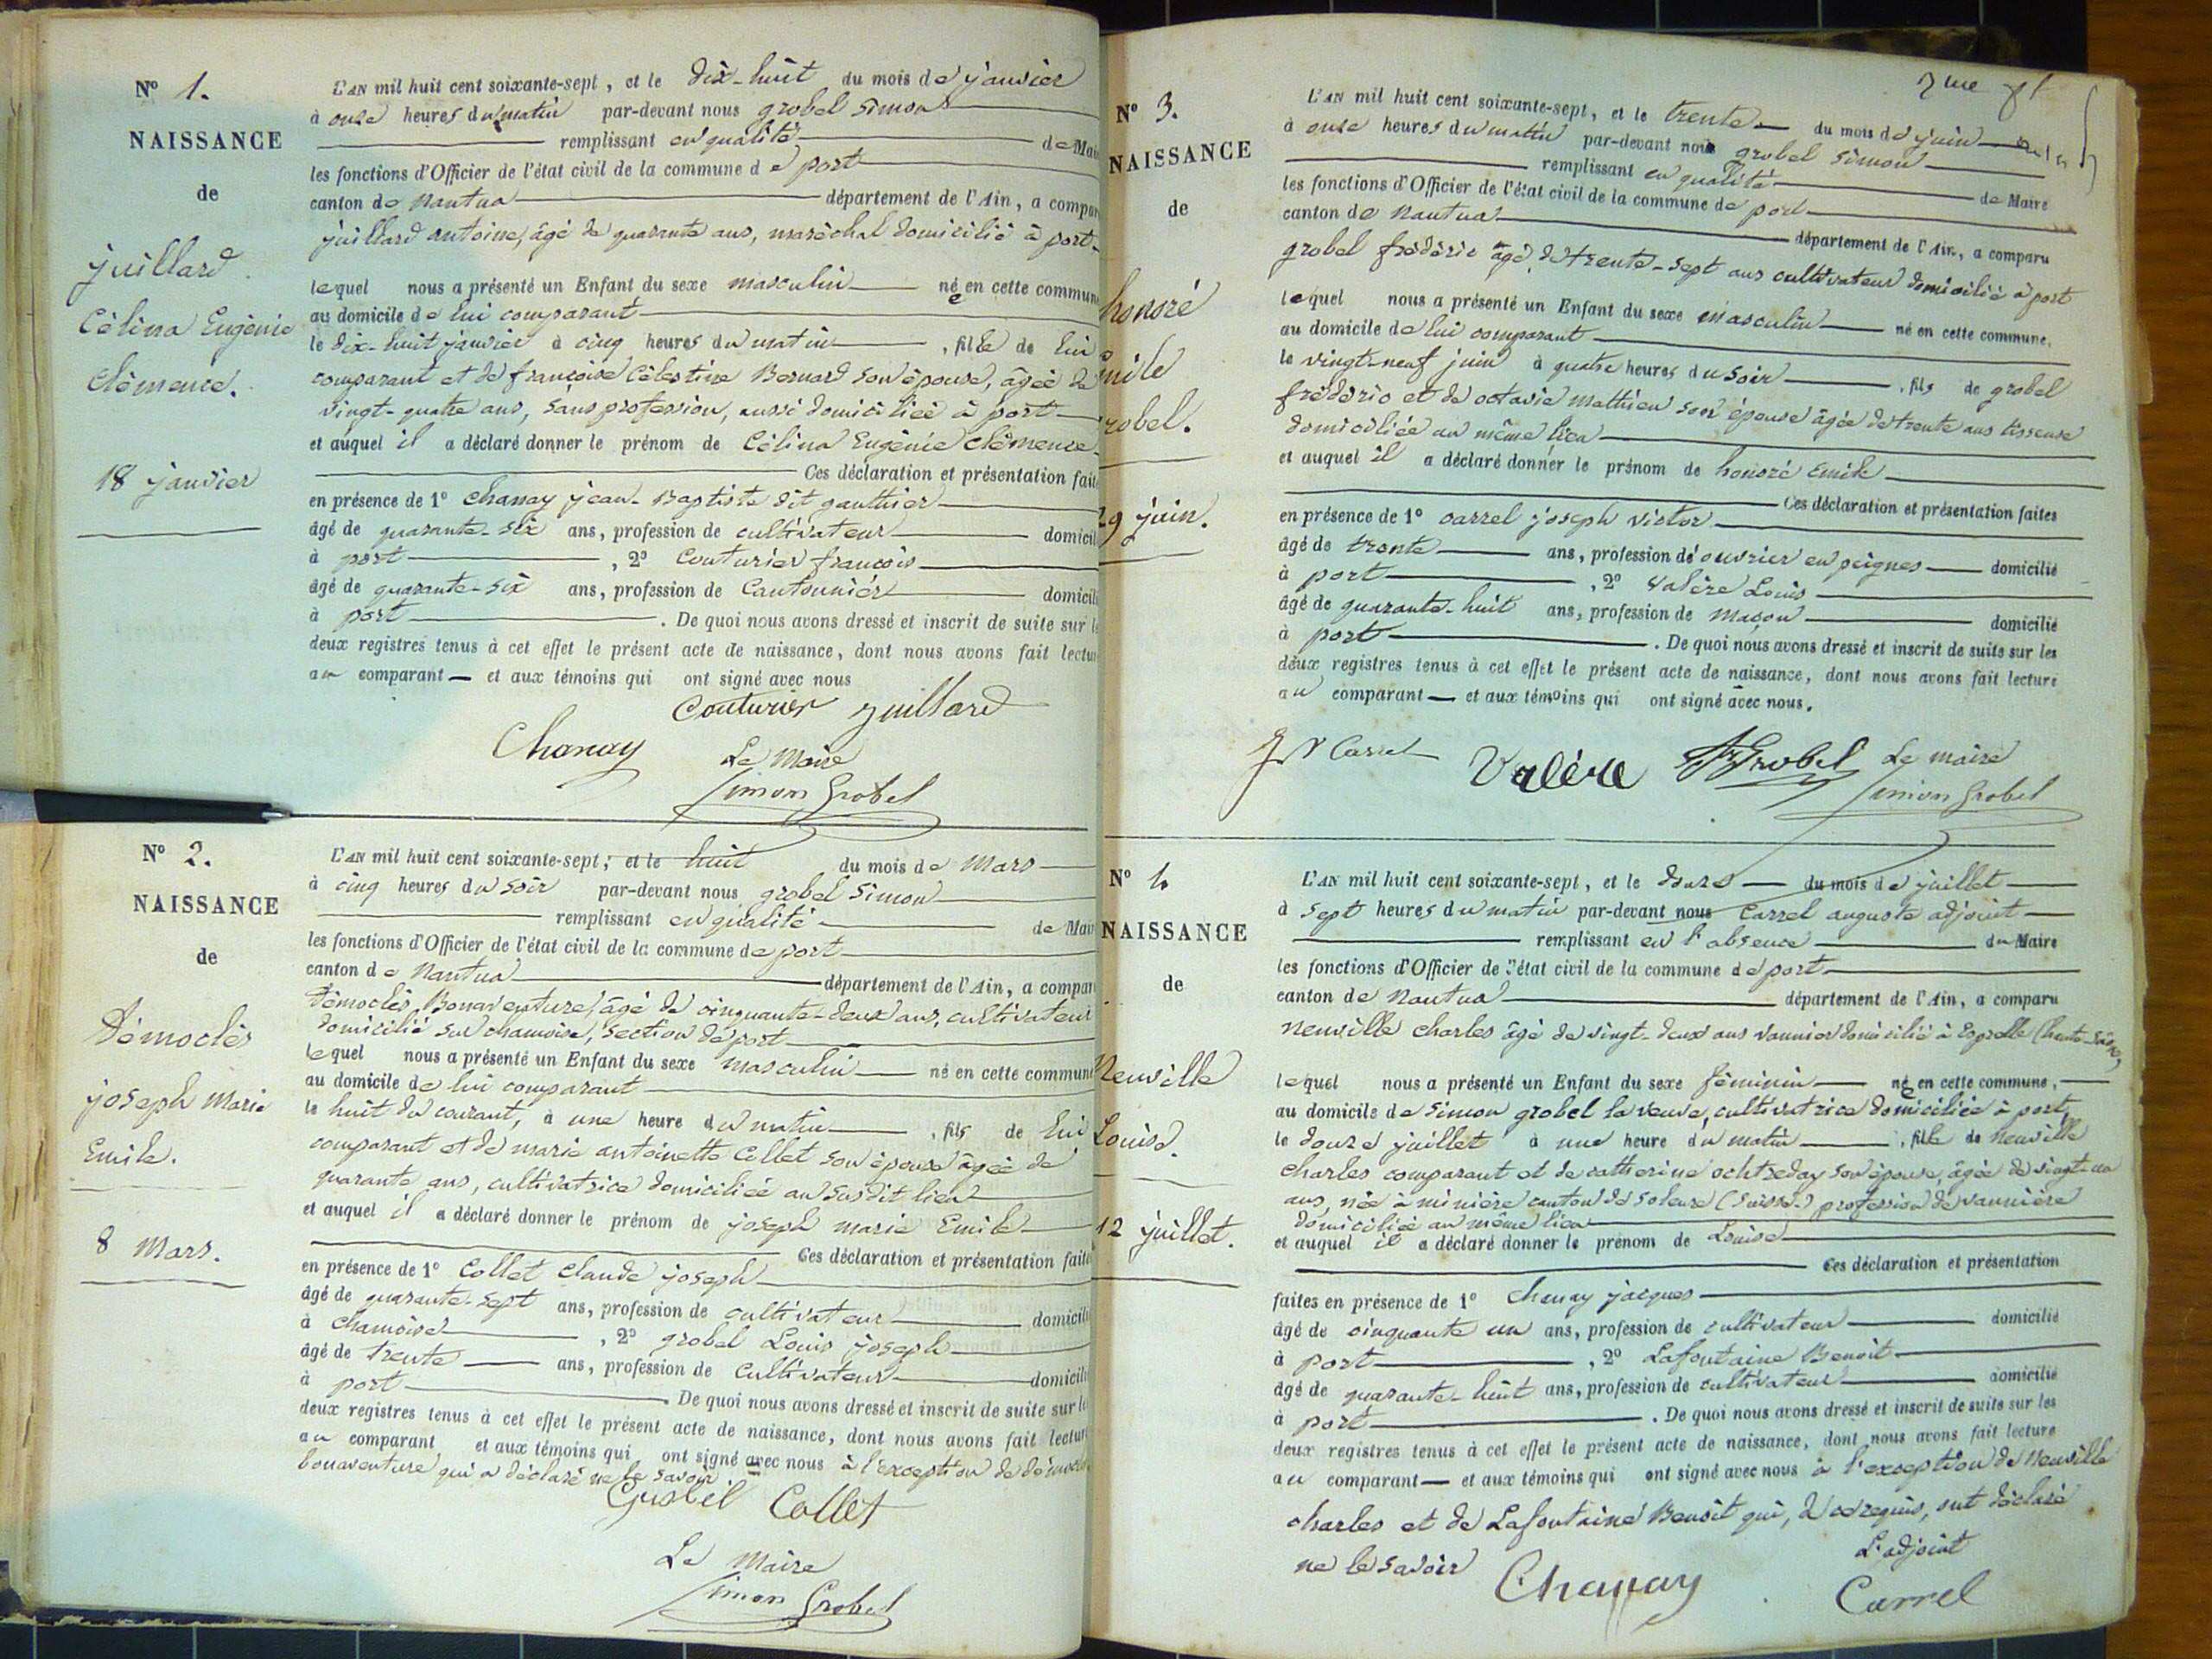 Nº 1.
NAISSANCE
de
juillard
Célina Eugénie
Clémence.
18 janvier
L'AN mil huit cent soixante-sept, et le dix-huit du mois de janvier
à onze heures du matin par-devant nous grobel Simon
remplissant en qualité de Mai
les fonctions d'Officier de l'état civil de la commune de port
canton de Nantua département de l'Ain, a compar
juillard antoine, âgé de quarante ans, maréchal domicilié à port
lequel nous a présenté un Enfant du sexe masculin née en cette commun
au domicile de lui comparant
le dix-huit janvier à cinq heures du matin, fille de lui
comparant et de françoise Célestine Bernard son épouse, âgée de
vingt-quatre ans, sans profession, aussi domiciliée à port
et auquel il a déclaré donner le prénom de Célina Eugénie Clémence
Ces déclaration et présentation fait
en présence de 1º Chanay jean-Baptiste dit gauthier
âgé de quarante-six ans, profession de cultivateur domicil
à port, 2º Couturier françois
âgé de quarante-six ans, profession de Cantonnier domicil
à port. De quoi nous avons dressé et inscrit de suite sur l
deux registres tenus à cet effet le présent acte de naissance, dont nous avons fait lectu
au comparant et aux témoins qui ont signé avec nous
Couturier juillard
Chanay Le Maire
Simon Grobel
Nº 2.
NAISSANCE
de
Démoclès
joseph Marie
Emile.
8 Mars.
L'AN mil huit cent soixante-sept, et le huit du mois de Mars
à cinq heures du soir par-devant nous grobel Simon
remplissant en qualité de Mair
les fonctions d'Officier de l'état civil de la commune de port
canton de Nantua département de l'Ain, a compar
Démoclès, Bonaventure, âgé de cinquante-deux ans, cultivateur
domicilié sur chamoise, section de port
lequel nous a présenté un Enfant du sexe masculin né en cette commun
au domicile de lui comparant
le huit du courant, à une heure du matin, fils de lui
comparant et de marie antoinette Collet son épouse âgée de
quarante ans, cultivatrice domiciliée au susdit lieu
et auquel il a déclaré donner le prénom de joseph marie Emile
Ces déclaration et présentation faite
en présence de 1º Collet Claude joseph
âgé de quarante-sept ans, profession de cultivateur domicili
à chamoise, 2º grobel Louis joseph
âgé de trente ans, profession de cultivateur domicili
à port De quoi nous avons dressé et inscrit de suite sur le
deux registres tenus à cet effet le présent acte de naissance, dont nous avons fait lectur
au comparant et aux témoins qui ont signé avec nous à l'exception de
bonaventure qui a déclaré ne le savoir
Grobel Collet
Le Maire
Simon Grobel
Nº 3.
NAISSANCE
de
honoré
mile
robel.
29 juin.
L'AN mil huit cent soixante-sept, et le trente du mois de juin
à onze heures du matin par-devant nous grobel Simon
remplissant en qualité de Maire
les fonctions d'Officier de l'état civil de la commune de port
canton de Nantua département de l'Ain, a comparu
grobel frédéric âgé de trente-sept ans cultivateur domicilié à port
lequel nous a présenté un Enfant du sexe masculin né en cette commune,
au domicile de lui comparant
le vingt-neuf juin à quatre heures du soir, fils de grobel
frédéric et de octavie mathieu son épouse âgée de trente ans tisseuse
domiciliée au même lieu
et auquel il a déclaré donner le prénom de honoré Emile
Ces déclaration et présentation faites
en présence de 1º carrel joseph victor
âgé de trente ans, profession de ouvrier en peignes domicilié
à port, 2º Valère Louis
âgé de quarante-huit ans, profession de maçon domicilié
à port. De quoi nous avons dressé et inscrit de suite sur les
deux registres tenus à cet effet le présent acte de naissance, dont nous avons fait lecture
au comparant et aux témoins qui ont signé avec nous.
J V Carrel Valère Grobel Le maire
Simon Grobel
Nº 4.
NAISSANCE
de
Neuville
Louise.
12 juillet.
L'AN mil huit cent soixante-sept, et le douze du mois de juillet
à sept heures du matin par-devant nous Carrel auguste adjoint
remplissant en l'absence du Maire
les fonctions d'Officier de l'état civil de la commune de port
canton de Nantua département de l'Ain, a comparu
neuville charles âgé de vingt-deux ans vannier domicilié à Esprelle (haute-Saône)
lequel nous a présenté un Enfant du sexe féminin née en cette commune,
au domicile de Simon grobel la veuve, cultivatrice domiciliée à port,
le douze juillet à une heure du matin, fille de neuville
charles comparant et de catherine ochtseday son épouse, âgée de vingt-un
ans, née à minière canton de Soleure (Suisse) profession de vannière
domiciliée au même lieu
et auquel il a déclaré donner le prénom de Louise
Ces déclaration et présentation
faites en présence de 1º Chanay jacques
âgé de cinquante un ans, profession de cultivateur domicilié
à port, 2º Lafontaine Benoit
âgé de quarante-huit ans, profession de cultivateur domicilié
à port. De quoi nous avons dressé et inscrit de suite sur les
deux registres tenus à cet effet le présent acte de naissance, dont nous avons fait lecture
au comparant et aux témoins qui ont signé avec nous à l'exception de Neuville
charles et de Lafontaine Benoit qui, de ce requis, ont déclaré
ne le savoir L'adjoint
Chanay Carrel